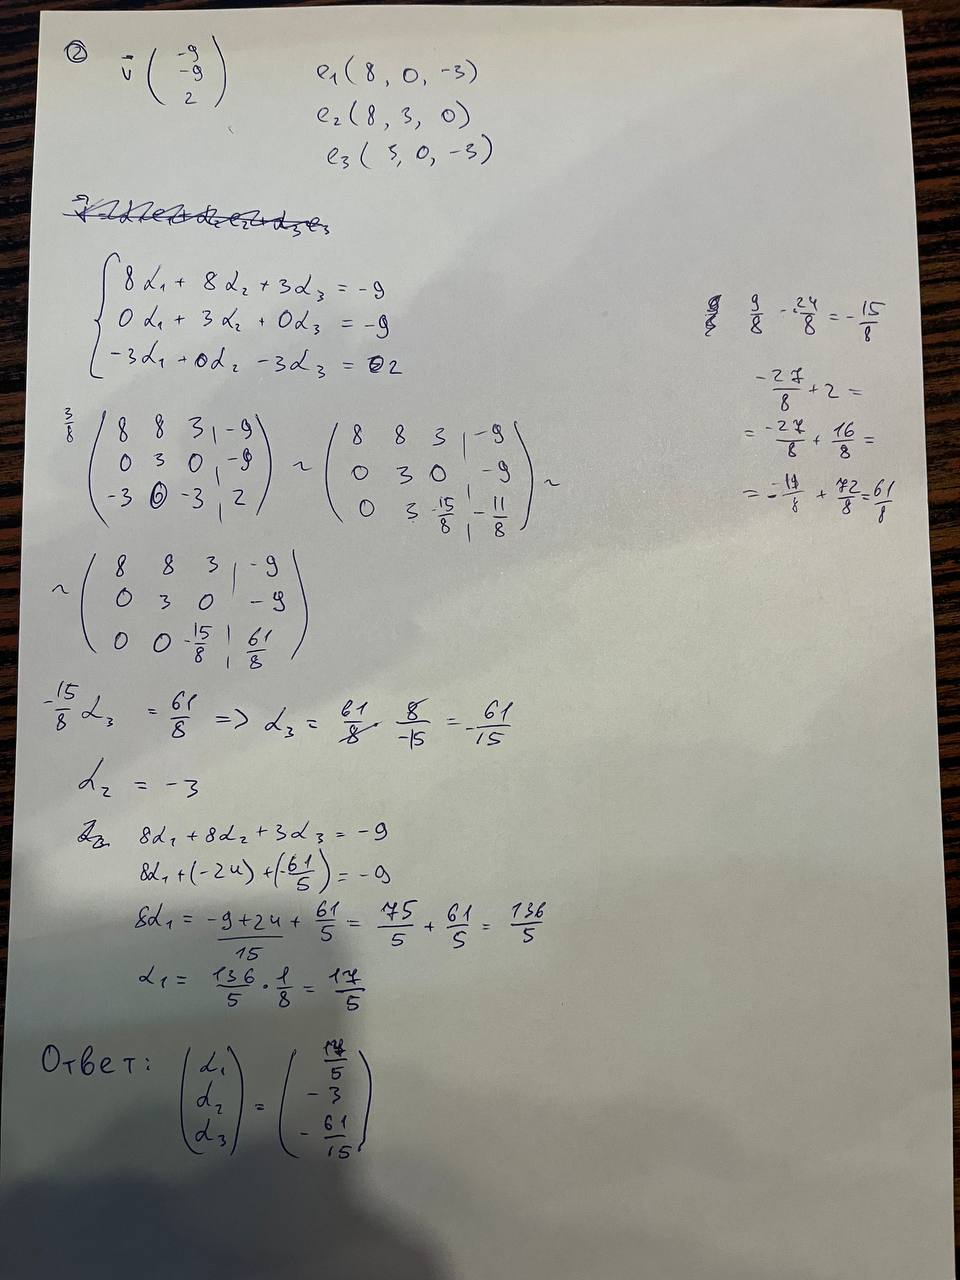 ② v̄ ( -9 -9 2 )
e₁ ( 8 , 0 , -3 )
e₂ ( 8 , 3 , 0 )
e₃ ( 3, 0, -3 )
{ 8 α₁ + 8 α₂ + 3α₃ = -9
0 α₁ + 3 α₂ + 0α₃ = -9
-3α₁ + 0α₂ - 3α₃ = 2
9/8 - 24/8 = - 15/8
-27/8 + 2 =
= -27/8 + 16/8 =
= - 11/8 + 72/8 = 61/8
3/8 ( 8 8 3 | -9 ) ( 8 8 3 | -9 )
( 0 3 0 | -9 ) ~ ( 0 3 0 | -9 ) ~
( -3 0 -3 | 2 ) ( 0 3 -15/8 | -11/8 )
~ ( 8 8 3 | -9 )
( 0 3 0 | -9 )
( 0 0 -15/8 | 61/8 )
-15/8 α₃ = 61/8 => α₃ = 61/8 · 8/-15 = - 61/15
α₂ = -3
8α₁ + 8α₂ + 3α₃ = -9
8α₁ + (-24) + (-61/5) = -9
8α₁ = -9+24 + 61/5 = 75/5 + 61/5 = 136/5
15
α₁ = 136/5 · 1/8 = 17/5
Ответ: ( α₁ α₂ α₃ ) = ( 17/5 -3 - 61/15 )